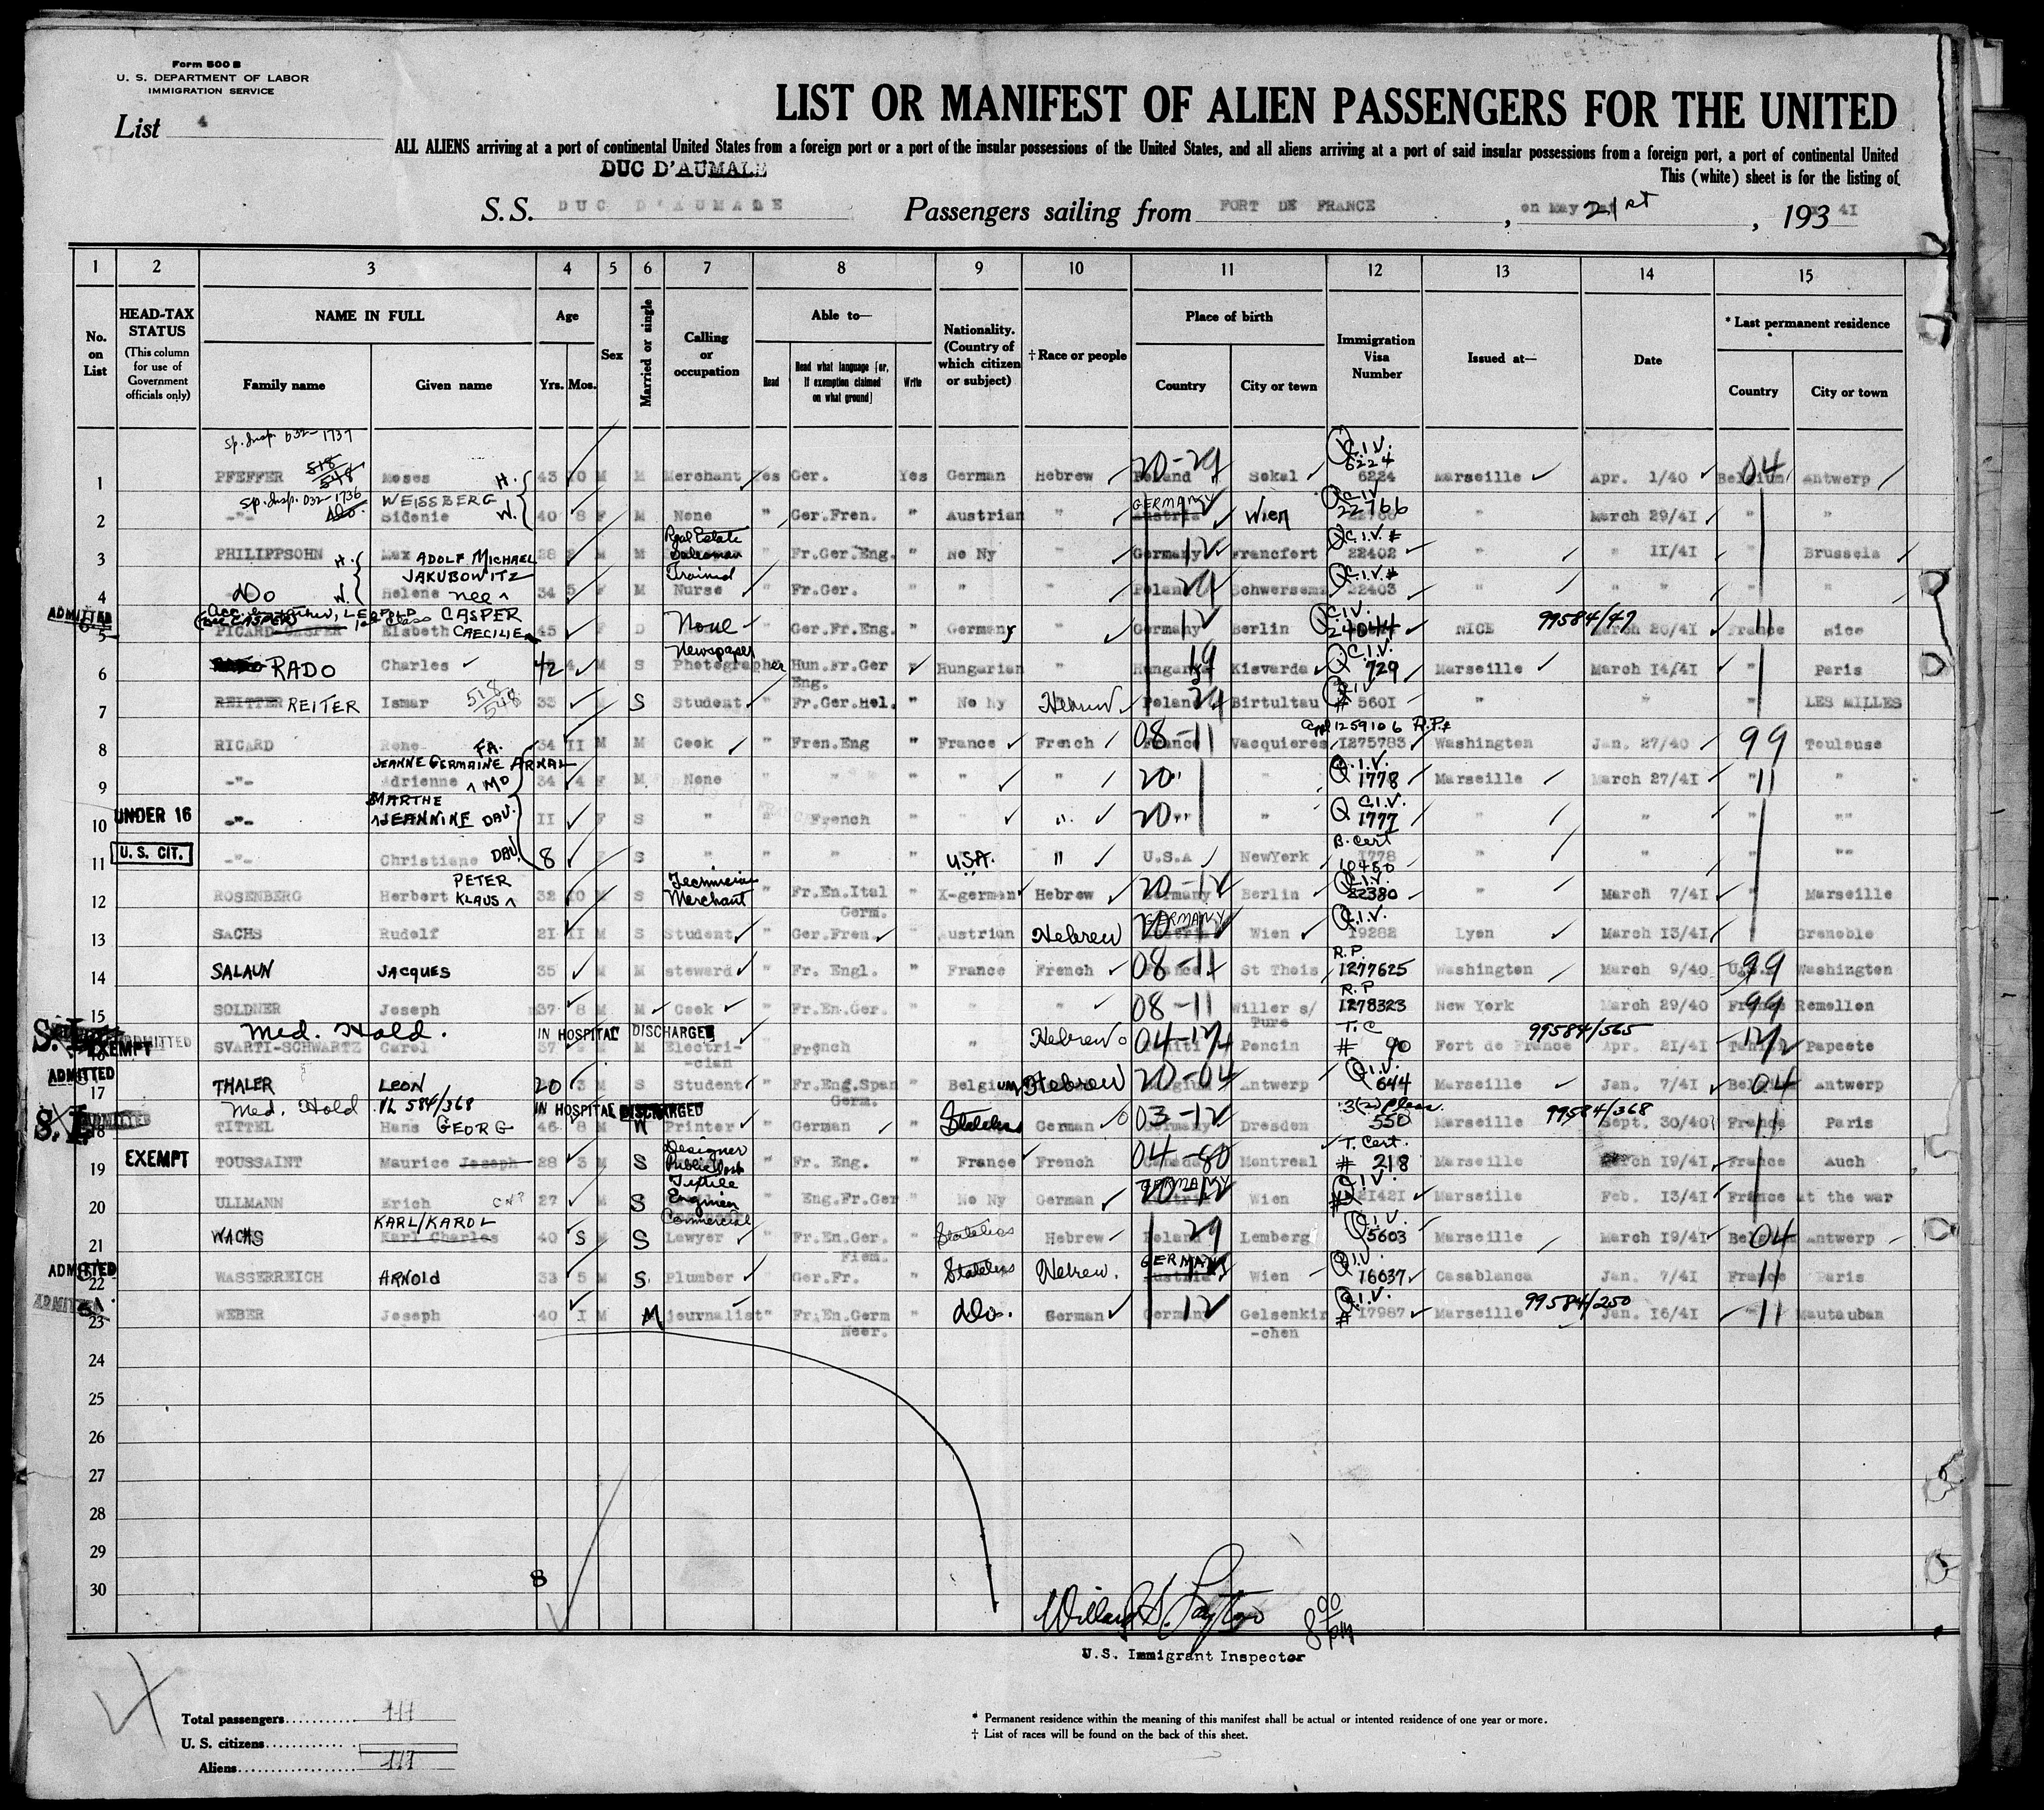 Form 500 B
U. S. DEPARTMENT OF LABOR
IMMIGRATION SERVICE
List 4
LIST OR MANIFEST OF ALIEN PASSENGERS FOR THE UNITED
ALL ALIENS arriving at a port of continental United States from a foreign port or a port of the insular possessions of the United States, and all aliens arriving at a port of said insular possessions from a foreign port, a port of continental United
DUC D'AUMALE
This (white) sheet is for the listing of
S.S. DUC D'AUMALE Passengers sailing from FORT DE FRANCE, on May 21st, 193 41
1 2 3 4 5 6 7 8 9 10 11 12 13 14 15
No. on List
HEAD-TAX STATUS (This column for use of Government officials only)
NAME IN FULL Family name Given name
Age Yrs. Mos.
Sex
Married or single
Calling or occupation
Able to— Read Read what language [or, if exemption claimed on what ground] Write
Nationality. (Country of which citizen or subject)
† Race or people
Place of birth Country City or town
Immigration Visa Number
Issued at—
Date
* Last permanent residence Country City or town
Sp. Insp. 032-1737
518/548
1 PFEFFER Moses H. 43 10 M M Merchant Yes Ger. Yes German Hebrew Poland 20-29 Sokal Q.I.V. 6224 6224 Marseille Apr. 1/40 Belgium 04 Antwerp
Sp. Insp. 032-1736
Do. WEISSBERG
2 -"- Sidonie W. 40 8 F M None " Ger.Fren. " Austrian " GERMANY Austria Wien Q.I.V. 22766 " March 29/41 " "
Real Estate
3 PHILIPPSOHN H. Max ADOLF MICHAEL 28 M M Salesman " Fr.Ger.Eng. " No Ny " Germany 12 Francfort Q.I.V. # 22402 " " 11/41 " Brussels
JAKUBOWITZ Trained
4 Do W. Helene nee 34 5 F M Nurse " Fr.Ger. " " " Poland 29 Schwersenz Q.I.V. # 22403 " " " " "
ADMITTED
CASPER
5 PICARD-CASPER Elsbeth CAECILIE 45 F D None " Ger.Fr.Eng. " Germany " Germany 12 Berlin Q.I.V. 24044 NICE 99584/47 March 20/41 France 11 Nice
Newspaper
6 RADO Charles 42 4 M S Photographer Hun.Fr.Ger Eng. " Hungarian " Hungary 19 Kisvarda Q.I.V. 729 Marseille March 14/41 " Paris
518/548
7 REITTER REITER Ismar 33 M S Student " Fr.Ger.Hel. " No Ny Hebrew Poland 29 Birtultau Q.I.V. # 5601 " " " LES MILLES
1259106 R.P.#
8 RICARD Rene FA. 34 11 M M Cook " Fren.Eng " France French France 08-11 Vacquieres 1275783 Washington Jan. 27/40 99 Toulouse
JEANNE GERMAINE ARNAL
9 -"- Adrienne MO 34 4 F M None " " " " " 20" " Q.I.V. 1778 Marseille March 27/41 " 11 "
MARTHE
10 UNDER 16 -"- JEANNINE DAU. 11 F S " " French " " " 20" " Q.I.V. 1777 " " " ""
11 U.S. CIT. -"- Christiane DAU. 8 F S " " " " U.S.A. " U.S.A NewYork B. Cert 1778 10450 " " " ""
PETER Technician
12 ROSENBERG Herbert KLAUS 32 10 M S Merchant " Fr.En.Ital Germ. " X-german Hebrew Germany 20-12 Berlin Q.I.V. 22380 " March 7/41 " Marseille
13 SACHS Rudolf 21 11 M S Student " Ger.Fren. " Austrian Hebrew GERMANY Austria 20-12 Wien Q.I.V. 19282 Lyon March 13/41 Grenoble
14 SALAUN JACQUES 35 M M steward " Fr. Engl. " France French France 08-11 St Thois R.P. 1277625 Washington March 9/40 U.S. 99 Washington
15 SOLDNER Joseph 37 8 M M Cook " Fr.En.Ger. " " " 08-11 Willer s/ Ture R.P 1278323 New York March 29/40 France 99 Remellen
Med. Hold. IN HOSPITAL DISCHARGED
S.I. ADMITTED EXEMPT SVARTI-SCHWARTZ Carol 37 M M Electrician " French " " Hebrew Tahiti 04- Poncin T.C # 90 Fort de France 99584/565 Apr. 21/41 Tahiti Papeete
ADMITTED
17 THALER LEON 20 3 M S Student " Fr.Eng.Span Germ. " Belgium Hebrew Belgium 20-04 Antwerp Q.I.V. 644 Marseille Jan. 7/41 Belgium 04 Antwerp
Med. Hold 584/368 IN HOSPITAL DISCHARGED
S.I. ADMITTED 18 TITTEL Hans GEORG 46 8 M W Printer " German " Stateless German Germany 03-12 Dresden 3(2) 550 Marseille 99584/368 Sept. 30/40 France 11 Paris
Designer
19 EXEMPT TOUSSAINT Maurice Joseph 28 3 M S Publicist " Fr. Eng. " France French Canada 04-80 Montreal T. Cert. # 218 Marseille March 19/41 France Auch
Textile
20 ULLMANN Erich 27 M S Engineer " Eng.Fr.Ger " No Ny German GERMANY Austria 20-12 Wien Q.I.V. # 21421 Marseille Feb. 13/41 France at the war
KARL/KAROL Commercial
21 WACHS Karl Charles 40 5 M S Lawyer " Fr.En.Ger. Flem. " Stateless Hebrew Poland 29 Lemberg Q.I.V. 5603 Marseille March 19/41 Belgium 04 Antwerp
ADMITTED
22 WASSERREICH ARNOLD 33 5 M S. Plumber " Ger.Fr. " Stateless Hebrew. GERMANY Austria Wien Q.I.V 16037 Casablanca Jan. 7/41 France 11 Paris
ADMITTED
23 WEBER Joseph 40 1 M M journalist " Fr.En.Germ Neer. " do. German Germany 12 Gelsenkir-chen Q.I.V. # 17987 Marseille 99584/250 Jan. 16/41 " 11 Mautauban
24
25
26
27
28
29
30
8
Willard
8 00 pm
U.S. Immigrant Inspector
Total passengers
U. S. citizens
Aliens
* Permanent residence within the meaning of this manifest shall be actual or intented residence of one year or more.
† List of races will be found on the back of this sheet.